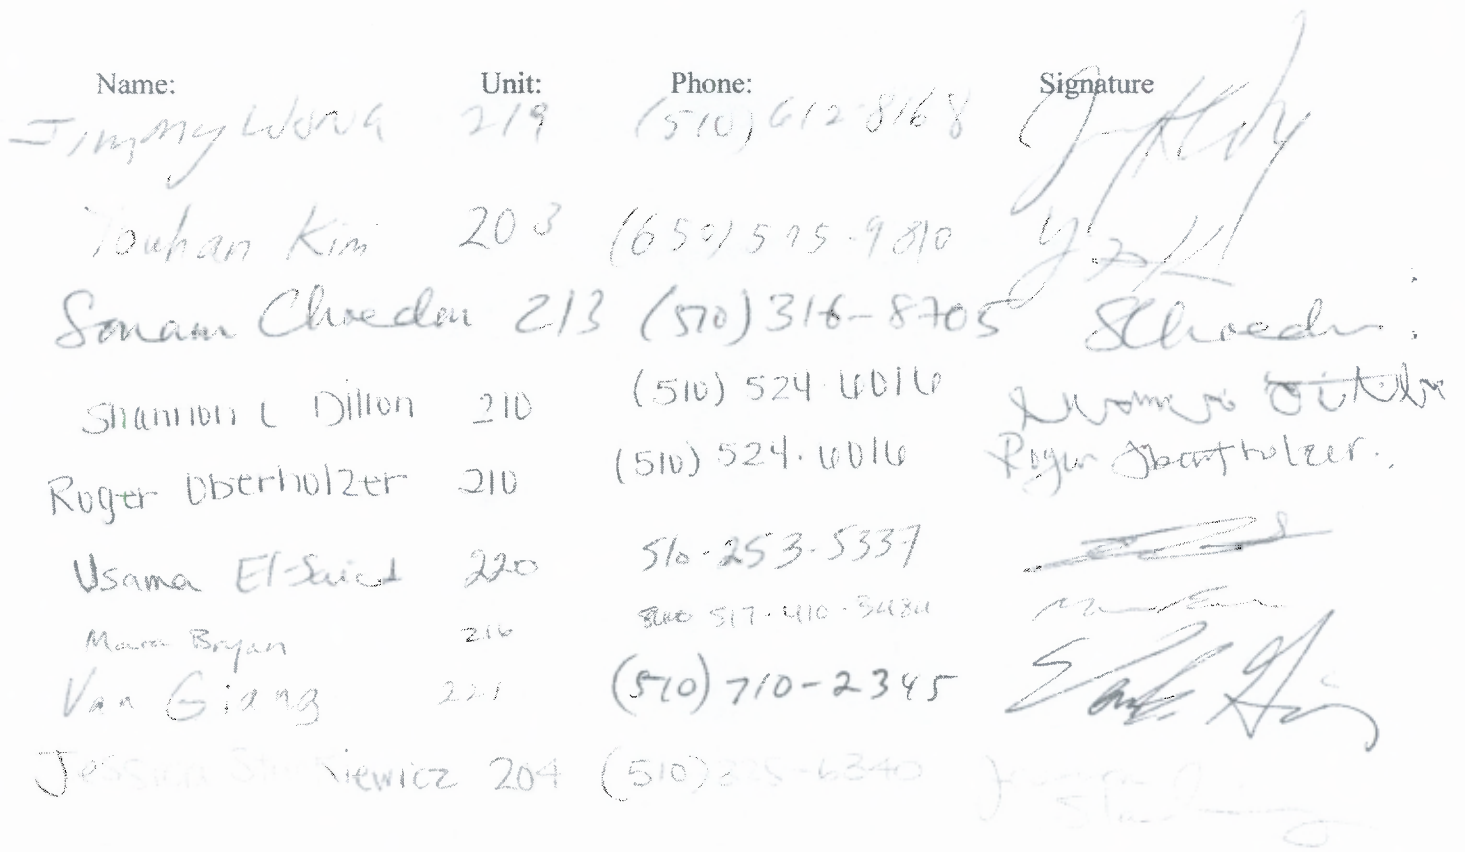 Name: Unit: Phone: Signature
Jimmy Wong 219 (510) 612-8168
Youhan Kim 203 (650) 575-9810
Sonam Choeden 213 (510) 316-8705 SChoeden
Shannon L Dillon 210 (510) 524-6016
Roger Oberholzer 210 (510) 524-6016 Roger Oberholzer.
Usama El-Saied 220 510-253-5337
Mara Bryan 216 517-410-3484
Van Giang 221 (510) 710-2345
Jessica 204 (510) -6340